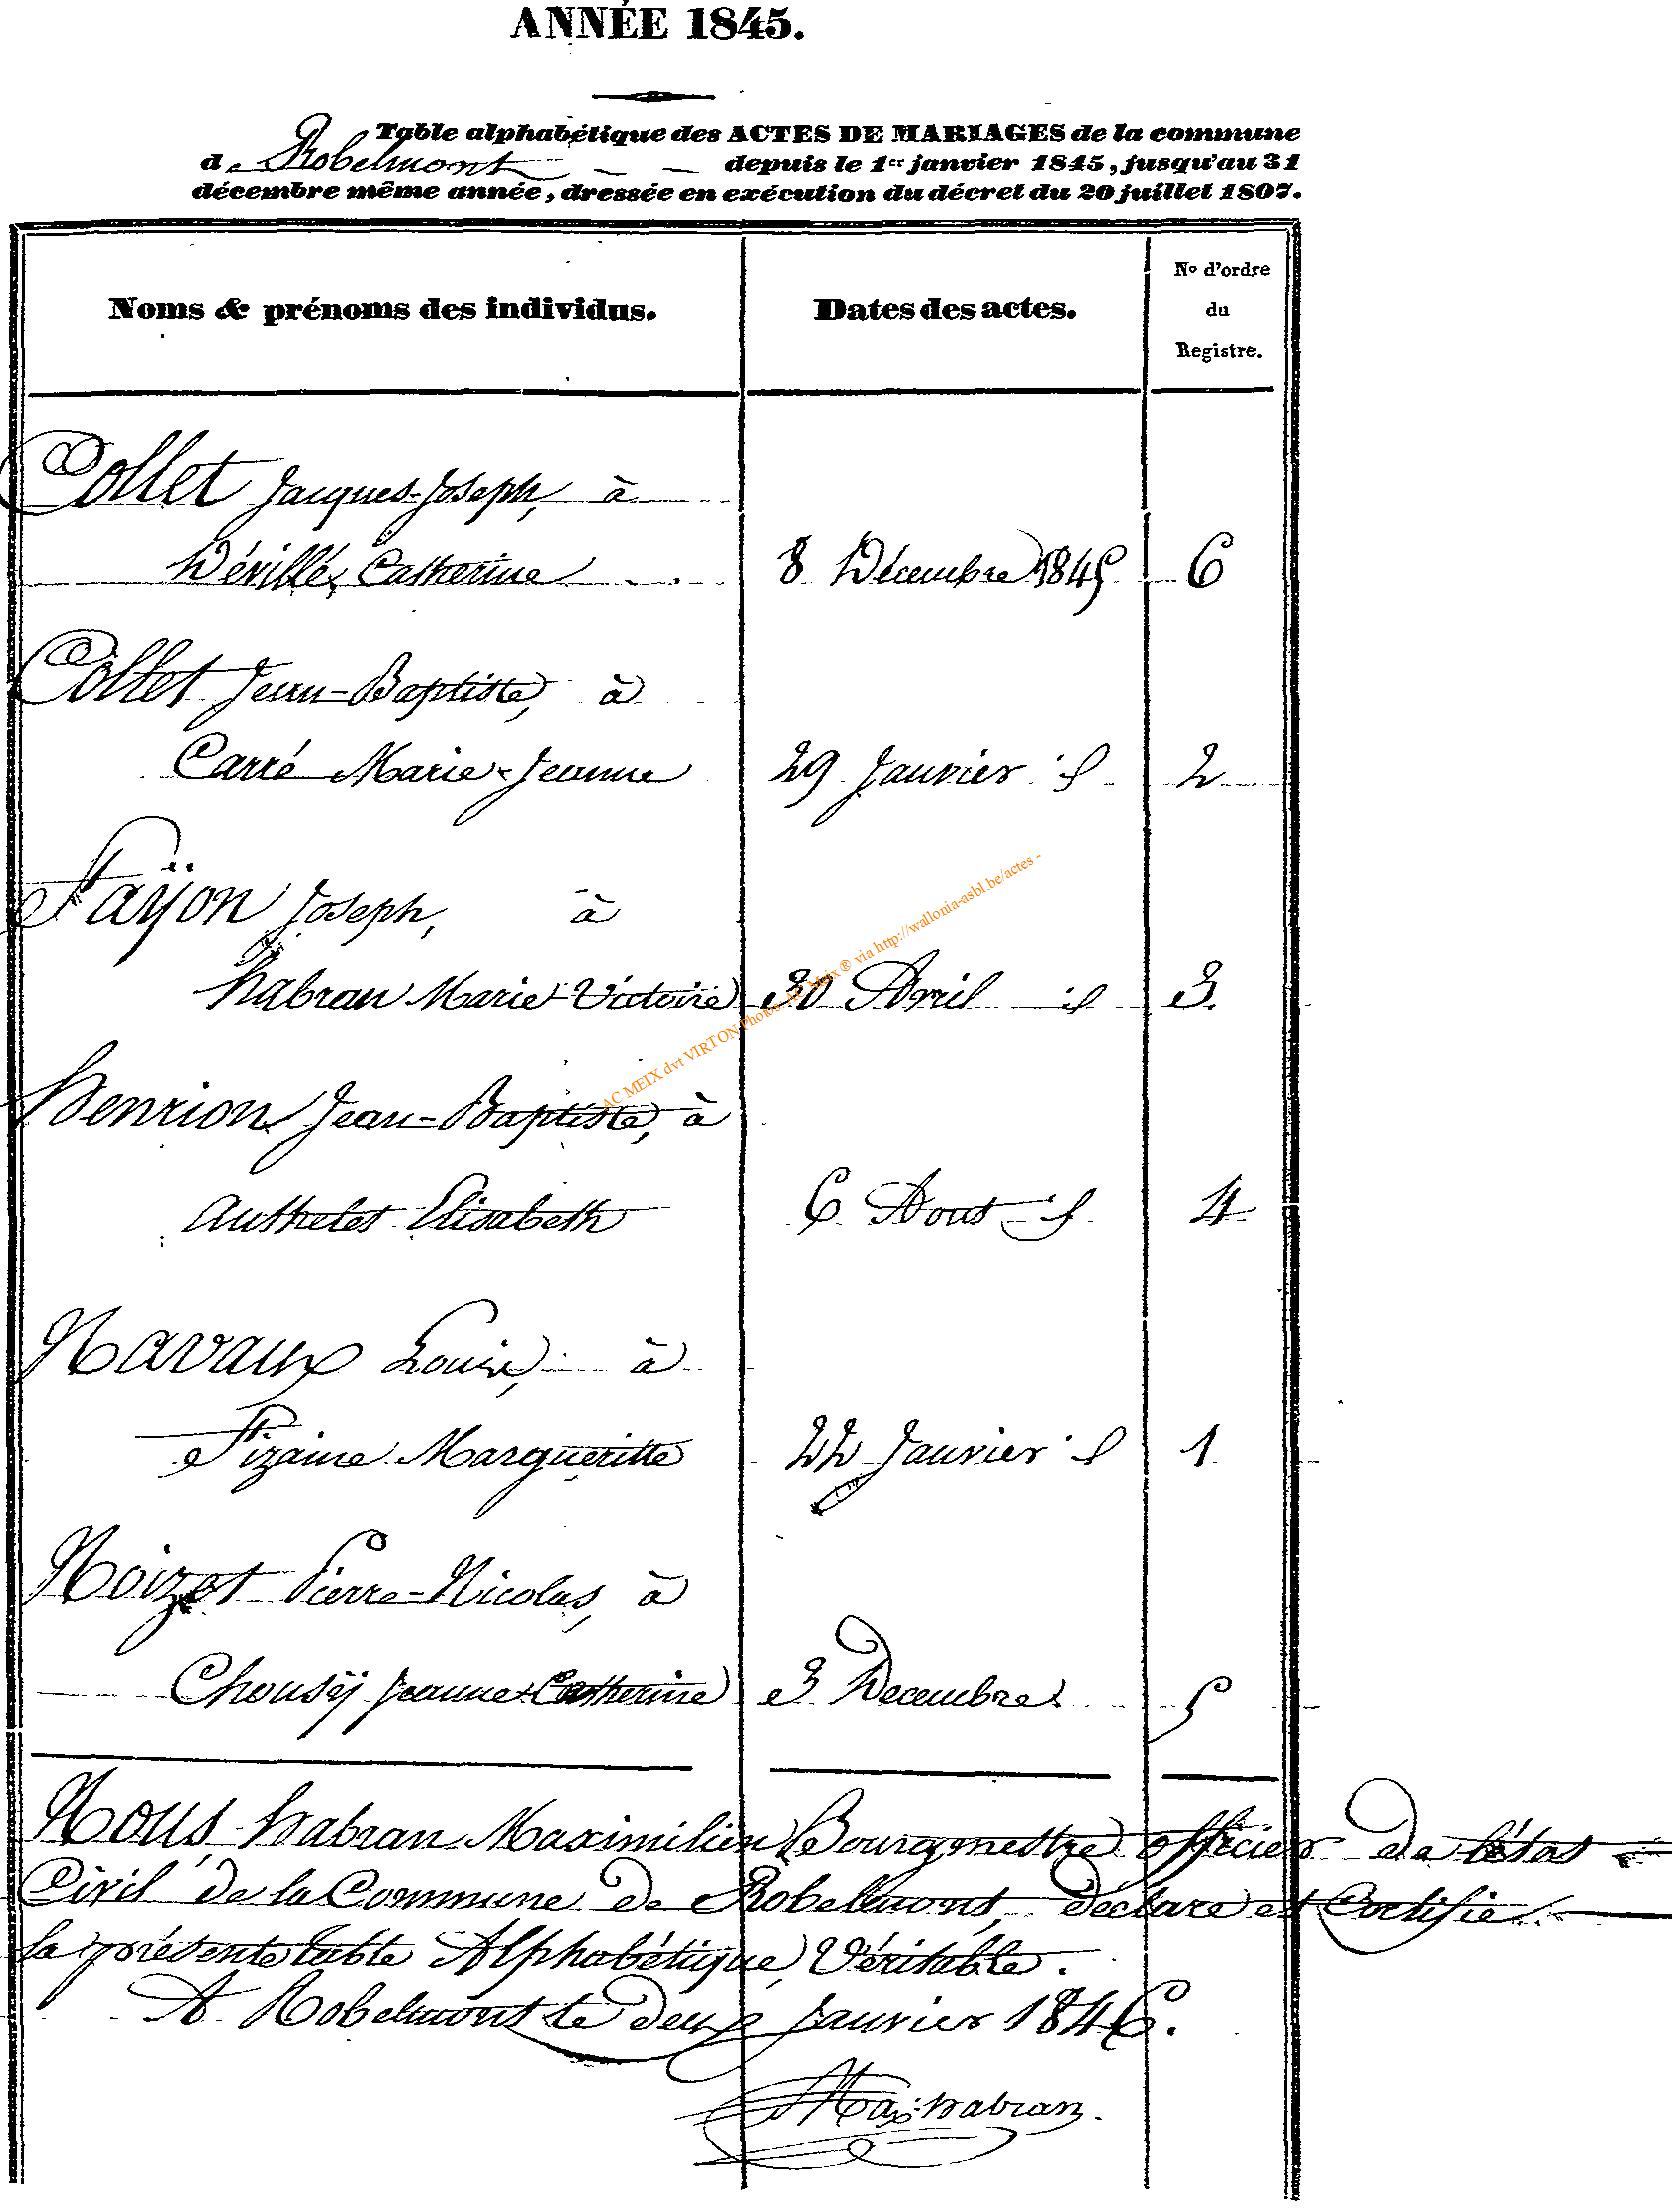 ANNÉE 1845.
Table alphabétique des ACTES DE MARIAGES de la commune
d e Robelmont depuis le 1er janvier 1845, jusqu'au 31
décembre même année, dressée en exécution du décret du 20 juillet 1807.
Noms & prénoms des individus. Dates des actes. No d'ordre du Registre.
Collet Jacques-Joseph, à
Dévillé, Catherine 8 Décembre 1845 6
Collet Jean-Baptiste, à
Carré Marie-Jeanne 29 Janvier id 2
Faÿon Joseph, à
habran Marie-Victoire 30 Avril id 3.
henrion Jean-Baptiste, à
Authelet Elisabeth 6 Aout id 4
Navaux Louis, à
Fizaine Margueritte 22 Janvier id 1
Noizet Pierre-Nicolas, à
Chousÿ Jeanne-Catherine 3 Decembre 5
Nous habran Maximilien Bourgmestre officier de létat
Civil de la Commune de Robelmont, déclare et Certifie
la présente table Alphabétique, Véritable.
A Robelmont le deux Janvier 1846.
Max: habran.
AC MEIX dvt VIRTON Photos via http://wallonia-asbl.be/actes -